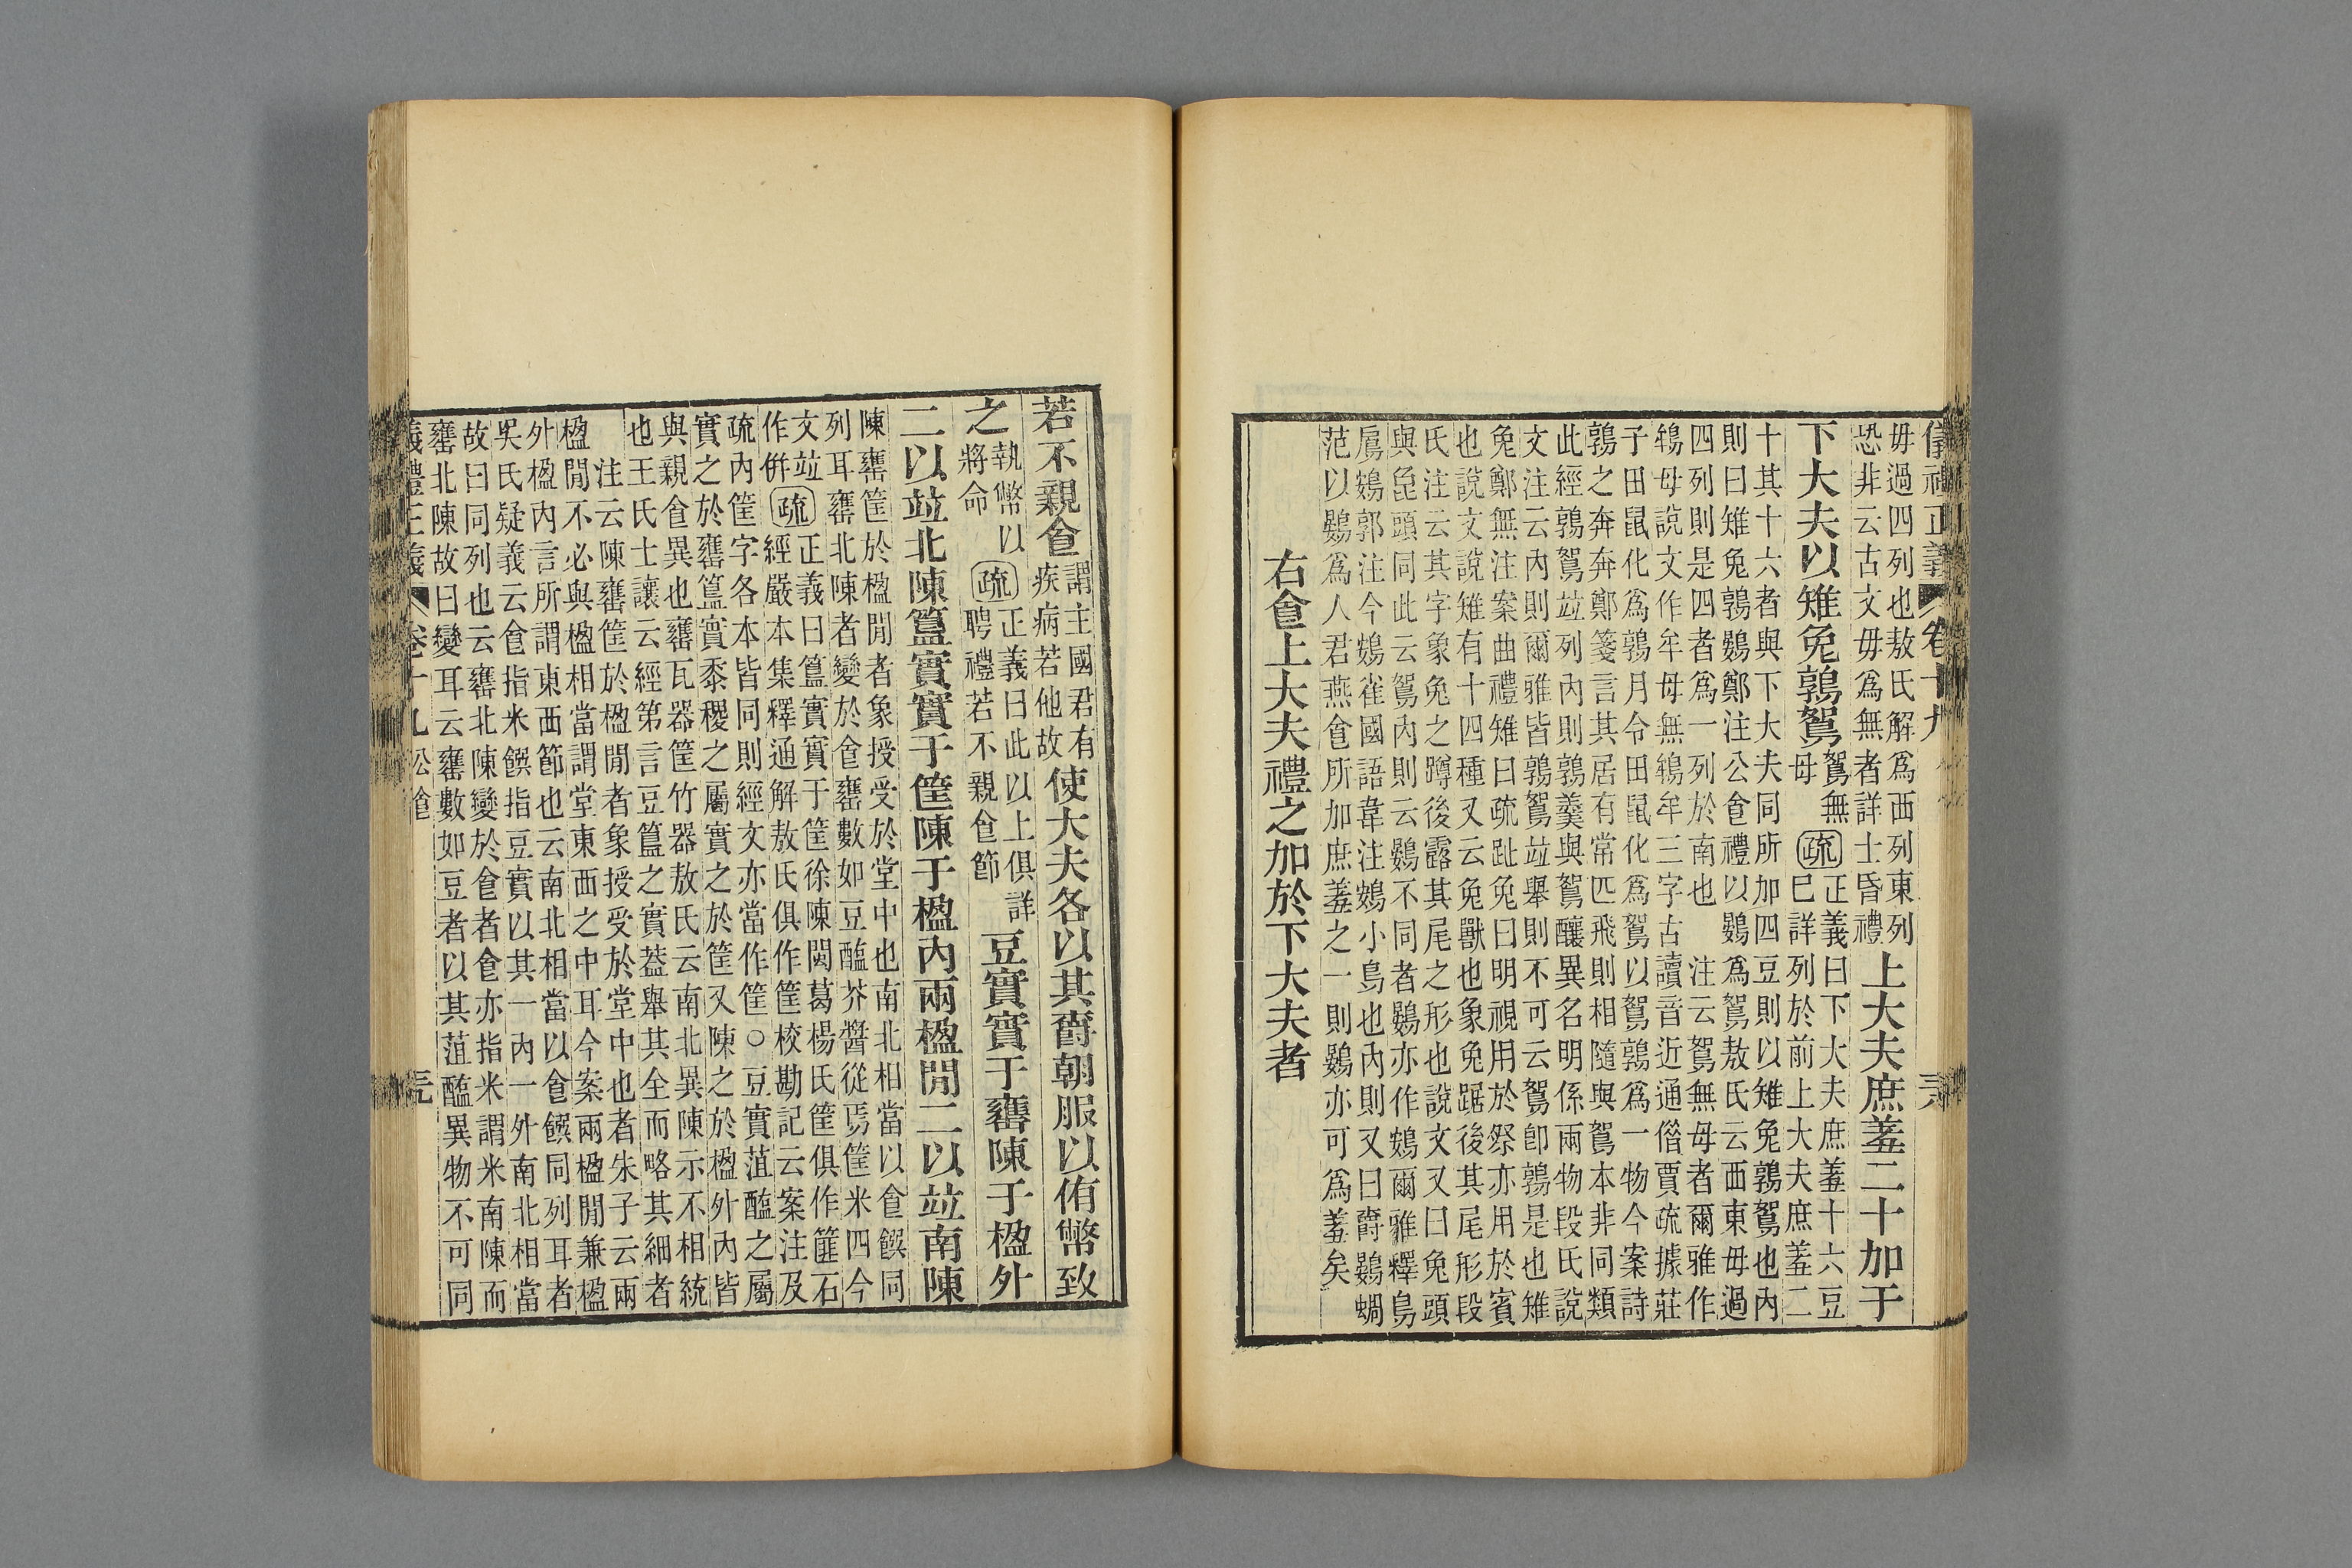 儀禮正義 卷十九
毋過四列也敖氏解爲西列東列
恐非云古文毋爲無者詳士昏禮
上大夫庶羞二十加于
下大夫以雉兔鶉鴽
鴽無
母
疏
正義曰下大夫庶羞十六豆
已詳列於前上大夫庶羞二
十其十六者與下大夫同所加四豆則以雉兔鶉鴽也內
則曰雉兔鶉鷃鄭注公食禮以鷃爲鴽敖氏云西東毋過
四列則是四者爲一列於南也　注云鴽無母者爾雅作
鴾母說文作牟母無鴾牟三字古讀音近通僣賈疏據莊
子田鼠化爲鶉月令田鼠化爲鴽以鴽鶉爲一物今案詩
鶉之奔奔鄭箋言其居有常匹飛則相隨與鴽本非同類
此經鶉鴽竝列內則鶉羹與鴽釀異名明係兩物段氏說
文注云內則爾雅皆鶉鴽竝舉則不可云鴽卽鶉是也雉
兔鄭無注案曲禮雉曰疏趾兔曰明視用於祭亦用於賓
也說文說雉有十四種又云兔獸也象兔踞後其尾形段
氏注云其字象兔之蹲後露其尾之形也說文又曰兔頭
與㲋頭同此云鴽內則云鷃不同者鷃亦作鴳爾雅釋鳥
鳸鴳郭注今鴳雀國語韋注鴳小鳥也內則又曰爵鷃蜩
范以鷃爲人君燕食所加庶羞之一則鷃亦可爲羞矣
右食上大夫禮之加於下大夫者
若不親食
謂主國君有
疾病若他故
使大夫各以其爵朝服以侑幣致
之
執幣以
將命
疏
正義曰此以上俱詳
聘禮若不親食節
豆實實于罋陳于楹外
二以竝北陳簋實實于筐陳于楹內兩楹閒二以竝南陳
陳罋筐於楹閒者象授受於堂中也南北相當以食饌同
列耳罋北陳者變於食罋數如豆醢芥醬從焉筐米四今
文竝
作併
疏
正義曰簋實實于筐徐陳閩葛楊氏筐俱作篚石
經嚴本集釋通解敖氏俱作筐校勘記云案注及
疏內筐字各本皆同則經文亦當作筐○豆實菹醢之屬
實之於罋簋實黍稷之屬實之於筐又陳之於楹外內皆
與親食異也罋瓦器筐竹器敖氏云南北異陳示不相統
也王氏士讓云經第言豆簋之實葢舉其全而略其細者
注云陳罋筐於楹閒者象授受於堂中也者朱子云兩
楹閒不必與楹相當謂堂東西之中耳今案兩楹閒兼楹
外楹內言所謂東西節也云南北相當以食饌同列耳者
吳氏疑義云食指米饌指豆實以其一內一外南北相當
故曰同列也云罋北陳變於食者食亦指米謂米南陳而
罋北陳故曰變耳云罋數如豆者以其菹醢異物不可同
儀禮正義 卷十九